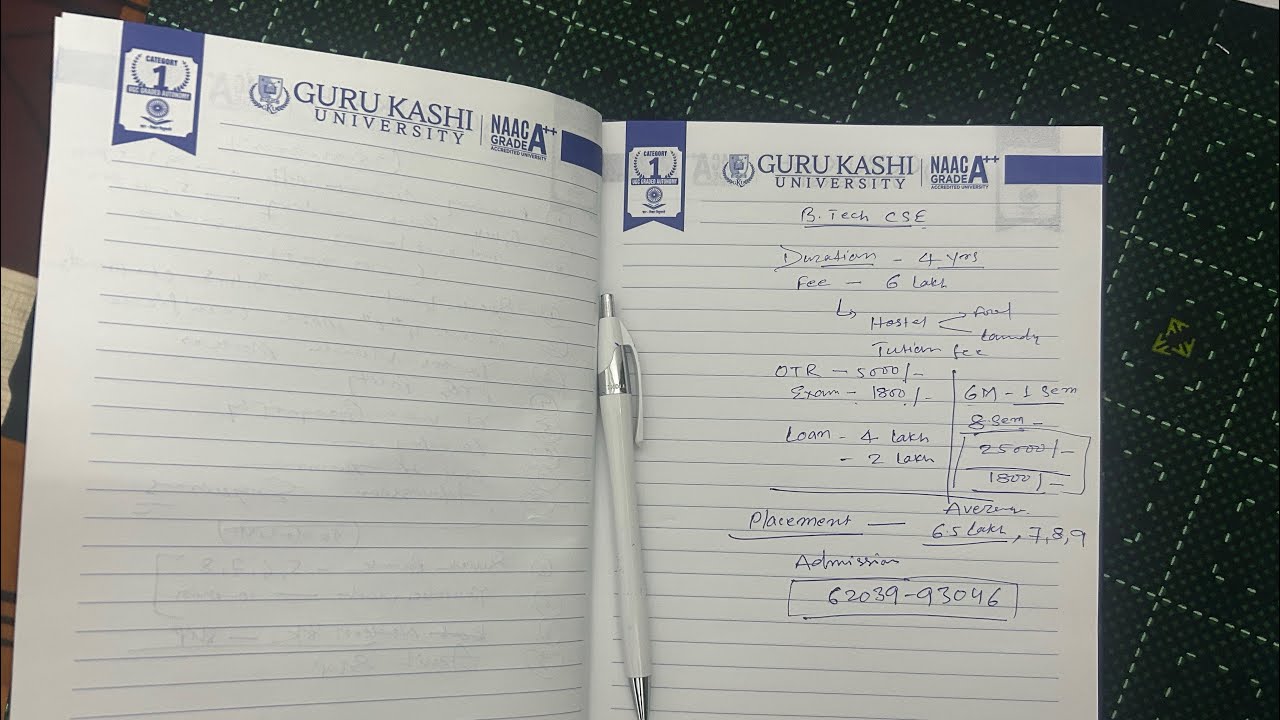 CATEGORY
1
UGC GRADED AUTONOMY
GURU KASHI
UNIVERSITY
NAAC
GRADE A++
ACCREDITED UNIVERSITY
CATEGORY
1
UGC GRADED AUTONOMY
GURU KASHI
UNIVERSITY
NAAC
GRADE A++
ACCREDITED UNIVERSITY
B.Tech CSE
Duration - 4 yrs
Fee - 6 Lakh
Hostel
Food
Laundry
Tution fee
OTR - 5000/-
Exam - 1800/-
6M - 1 Sem
8 Sem -
Loan - 4 Lakh
- 2 Lakh
25000/-
1800/-
Placement —
Average
6.5 Lakh, 7,8,9
Admission
62039-93046